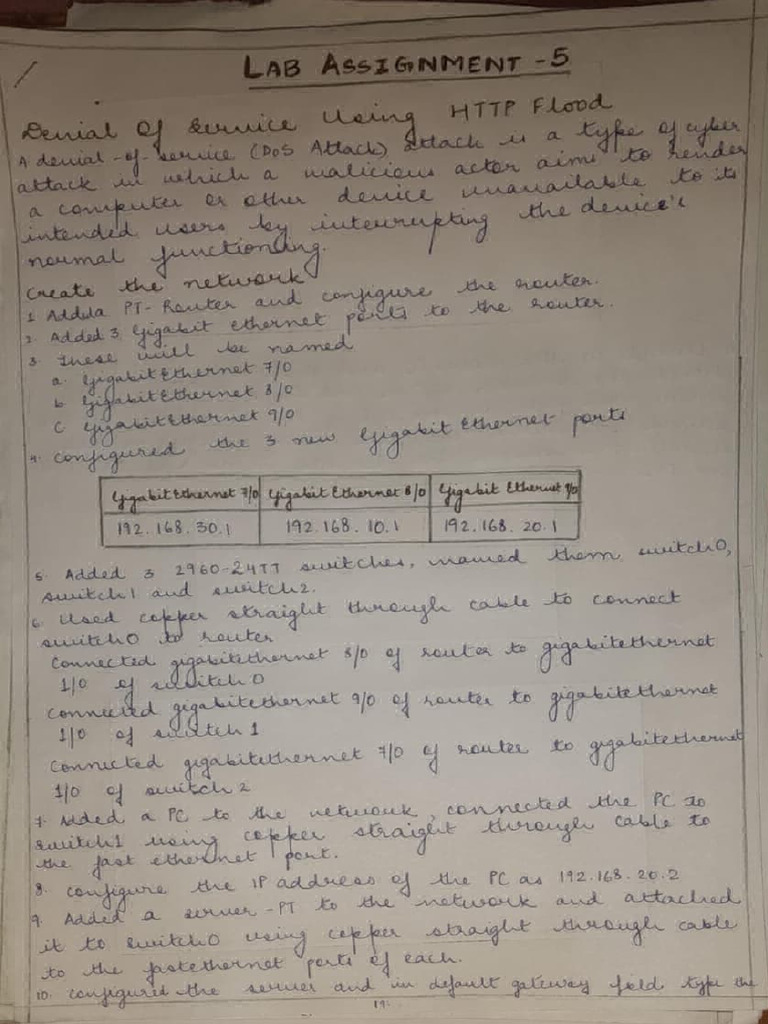 LAB ASSIGNMENT - 5
Denial Of Service Using HTTP Flood
A denial-of-service (DoS Attack) attack is a type of cyber
attack in which a malicious actor aims to render
a computer or other device unavailable to its
intended users by interrupting the device's
normal functioning.
Create the network
1. Added a PT-Router and configure the router.
2. Added 3 Gigabit Ethernet ports to the router.
3. These will be named
a. GigabitEthernet 7/0
b. GigabitEthernet 8/0
c GigabitEthernet 9/0
4. Configured the 3 new Gigabit Ethernet ports
Gigabit Ethernet 7/0 Gigabit Ethernet 8/0 Gigabit Ethernet 9/0
192.168.30.1 192.168.10.1 192.168.20.1
5. Added 3 2960-24TT switches, named them switch0,
switch1 and switch2.
6. Used copper straight through cable to connect
switch0 to router
Connected gigabitethernet 8/0 of router to gigabitethernet
1/0 of switch0
Connected gigabitethernet 9/0 of router to gigabitethernet
1/0 of switch1
Connected gigabitethernet 7/0 of router to gigabitethernet
1/0 of switch2
7. Added a PC to the network, connected the PC to
switch1 using copper straight through cable to
the fast ethernet port.
8. Configure the IP address of the PC as 192.168.20.2
9. Added a server-PT to the network and attached
it to switch0 using copper straight through cable
to the fastethernet ports of each.
10. Configured the server and in default gateway field type the
19